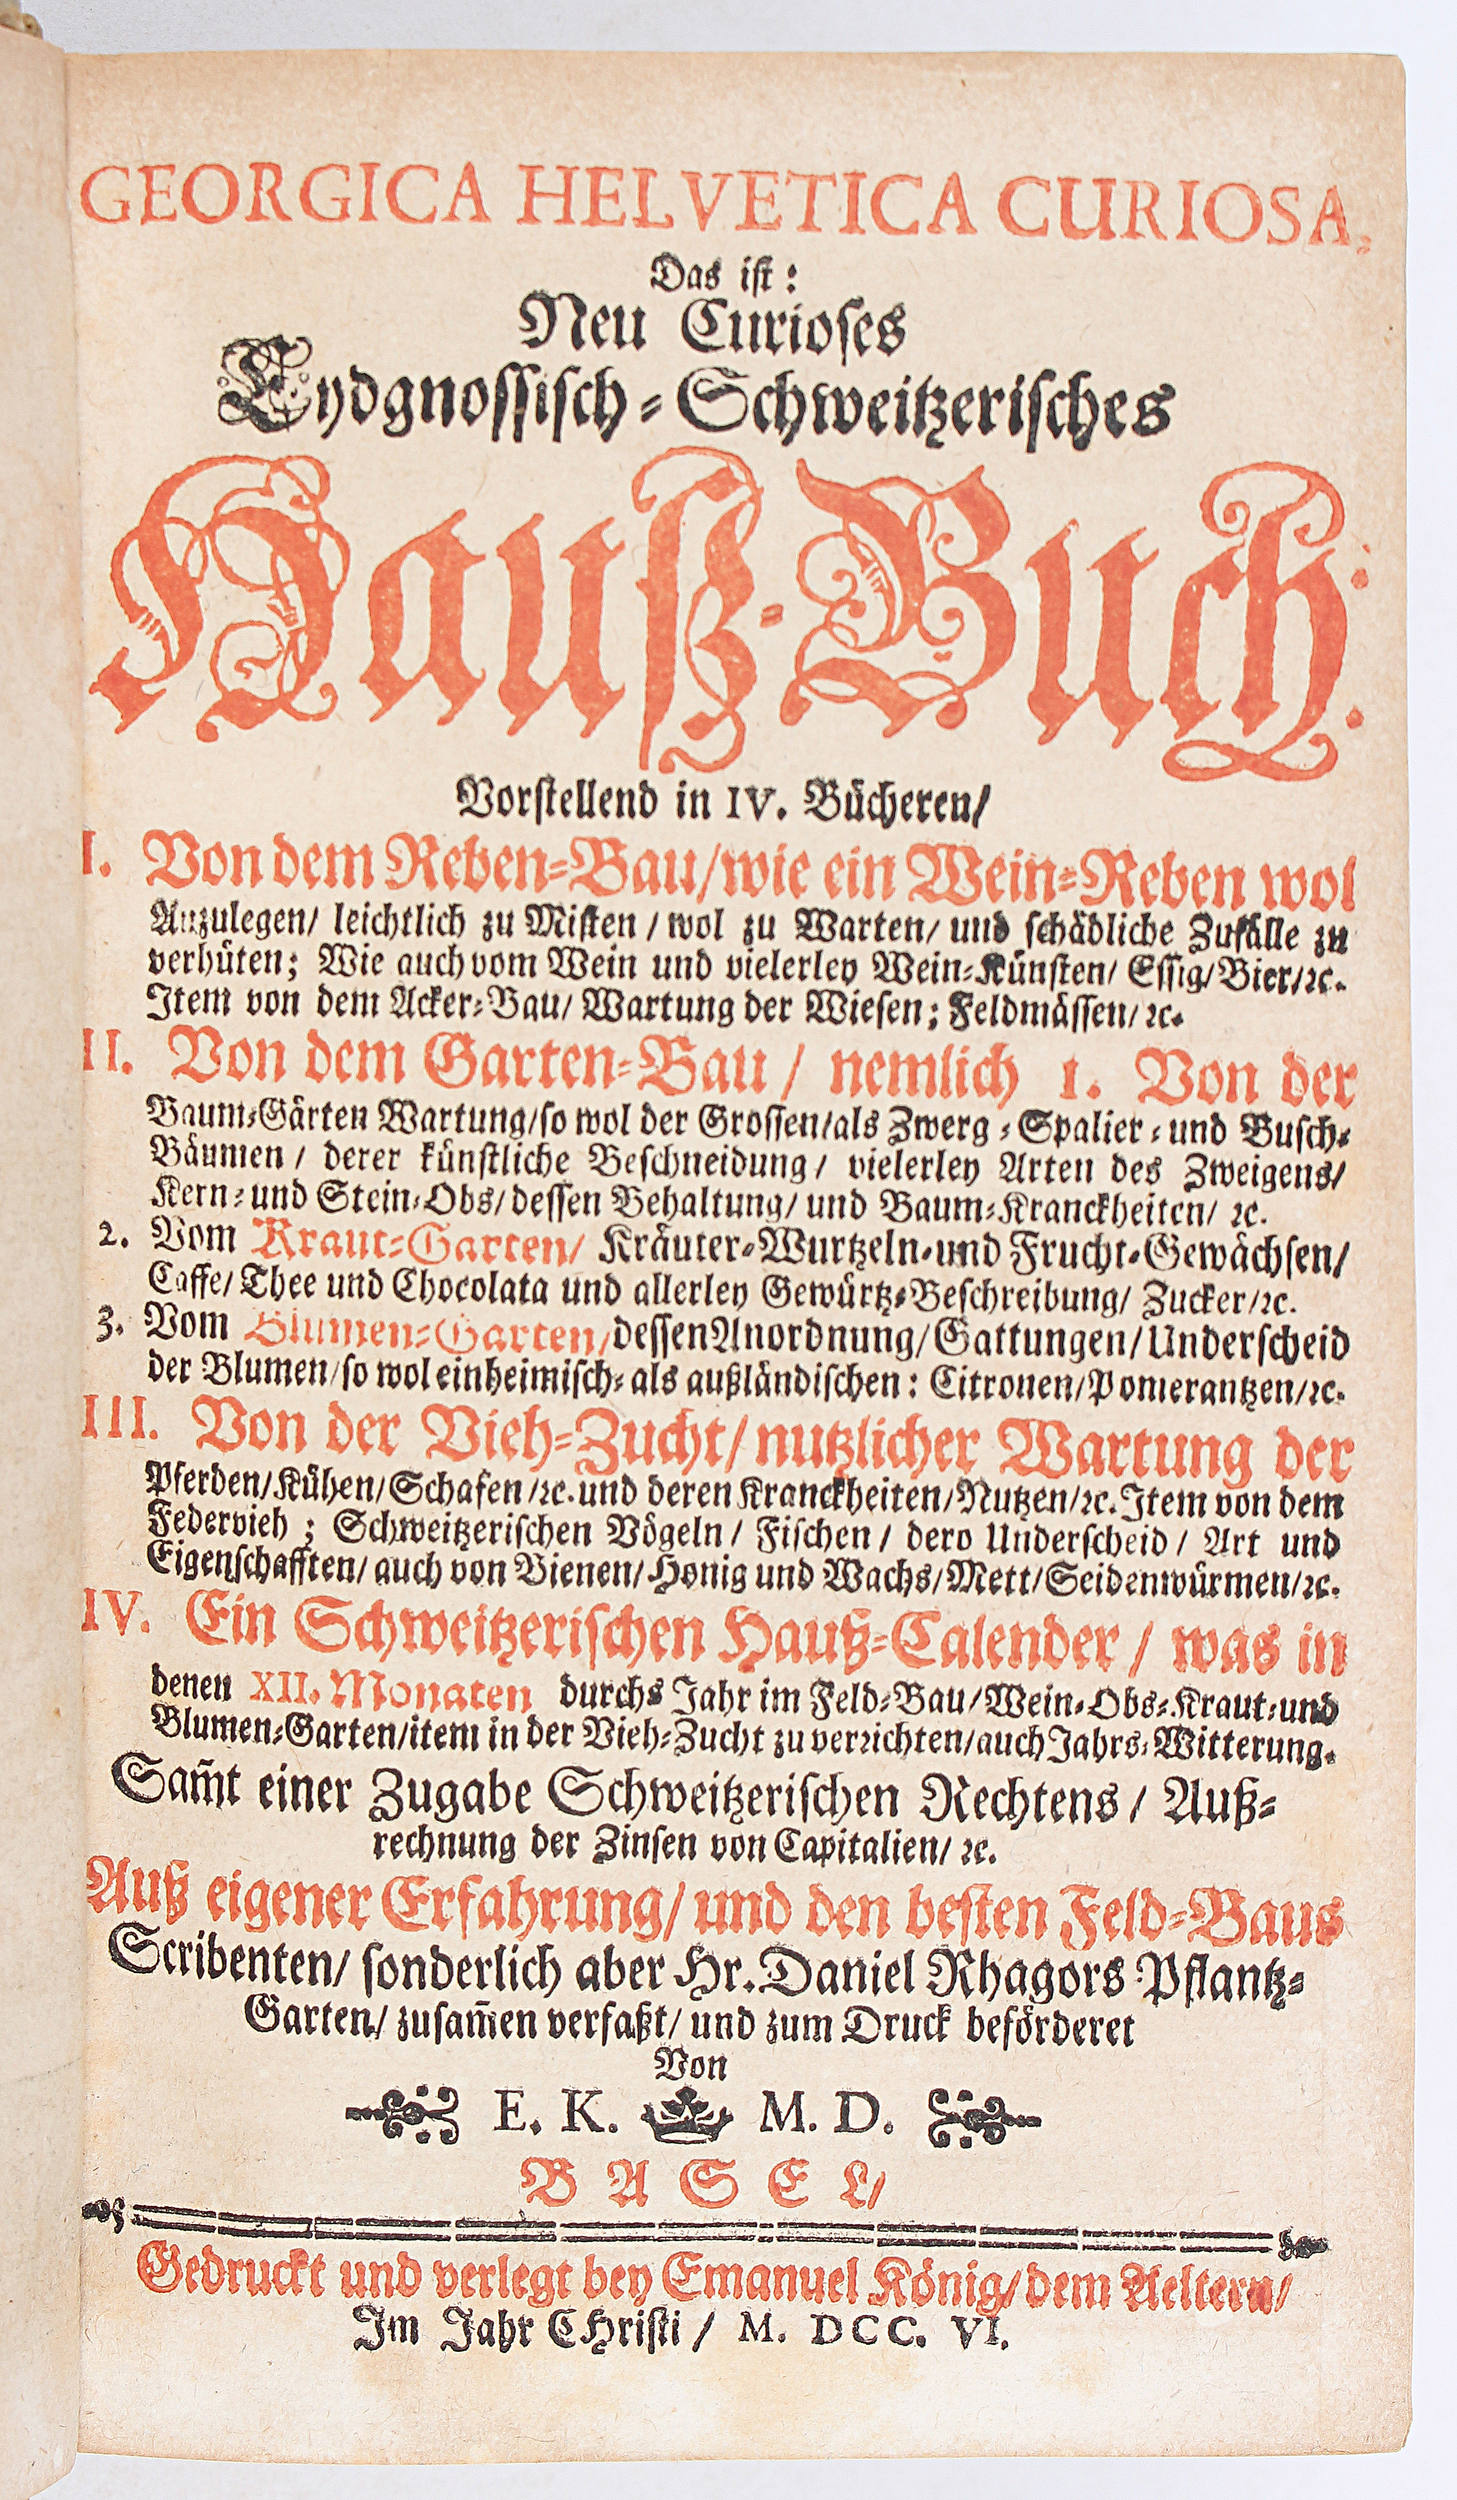 GEORGICA HELVETICA CURIOSA,
Das ist:
Neu Curioses
Eydgnossisch-Schweitzerisches
Hauß-Buch:
Vorstellend in IV. Bücheren/
I. Von dem Reben-Bau/wie ein Wein-Reben wol
Anzulegen/ leichtlich zu Misten / wol zu Warten/ und schädliche Zufälle zu
verhüten; Wie auch vom Wein und vielerley Wein-Künsten/ Essig/Bier/ꝛc.
Item von dem Acker-Bau/ Wartung der Wiesen; Feldmässen/ ꝛc.
II. Von dem Garten-Bau / nemlich 1. Von der
Baum-Gärten Wartung/so wol der Grossen/als Zwerg-Spalier-und Busch-
Bäumen / derer künstliche Beschneidung/ vielerley Arten des Zweigens/
Kern-und Stein-Obs/dessen Behaltung/ und Baum-Kranckheiten/ ꝛc.
2. Vom Kraut-Garten/ Kräuter-Wurtzeln-und Frucht-Gewächsen/
Caffe/ Thee und Chocolata und allerley Gewürtz-Beschreibung/ Zucker/ꝛc.
3. Vom Blumen-Garten/dessen Anordnung/Gattungen/Underscheid
der Blumen/so wol einheimisch-als außländischen: Citronen/Pomerantzen/ꝛc.
III. Von der Vieh-Zucht/nutzlicher Wartung der
Pferden/Kühen/Schafen/ꝛc.und deren Kranckheiten/Nutzen/ꝛc.Item von dem
Federvieh; Schweitzerischen Vögeln/ Fischen / dero Underscheid / Art und
Eigenschafften/auch von Bienen/Honig und Wachs/Mett/Seidenwürmen/ꝛc.
IV. Ein Schweitzerischen Hauß-Calender / was in
denen XII. Monaten durchs Jahr im Feld-Bau/Wein-Obs-Kraut-und
Blumen-Garten/item in der Vieh-Zucht zu verrichten/auch Jahrs-Witterung.
Sam̃t einer Zugabe Schweitzerischen Rechtens / Auß-
rechnung der Zinsen von Capitalien/ ꝛc.
Auß eigener Erfahrung/und den besten Feld-Baus
Scribenten/ sonderlich aber Hr. Daniel Rhagors Pflantz-
Garten/ zusam̃en verfaßt/ und zum Druck beförderet
Von
E. K. M. D.
BASEL/
Gedruckt und verlegt bey Emanuel König/dem Aeltern/
Im Jahr CHristi / M. DCC. VI.